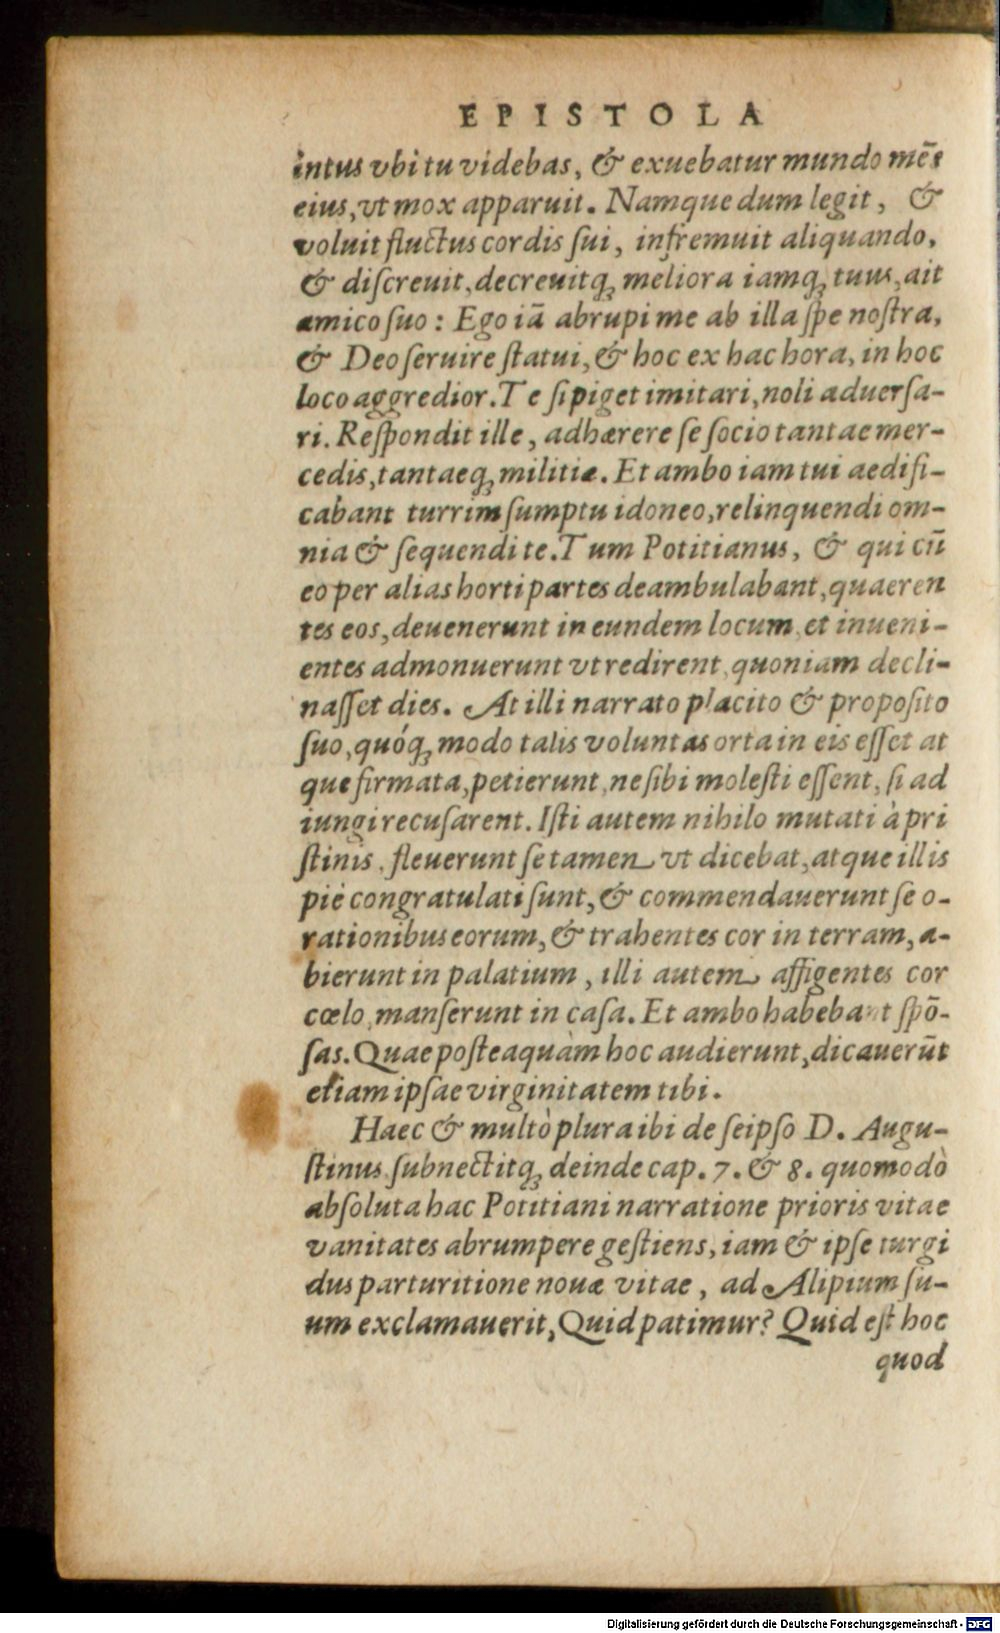 EPISTOLA
intus vbi tu videbas, & exuebatur mundo mẽs
eius, vt mox apparuit. Namque dum legit, &
voluit fluctus cordis ſui, infremuit aliquando,
& diſcreuit, decreuitq́; meliora iamq́; tuus, ait
amico ſuo: Ego iã abrupi me ab illa ſpe noſtra,
& Deo ſeruire ſtatui, & hoc ex hac hora, in hoc
loco aggredior. Te ſi piget imitari, noli aduerſa-
ri. Reſpondit ille, adhærere ſe ſocio tantae mer-
cedis, tantaeq́; militiæ. Et ambo iam tui aedifi-
cabant turrim ſumptu idoneo, relinquendi om-
nia & ſequendi te. Tum Potitianus, & qui cũ
eo per alias horti partes deambulabant, quaeren
tes eos, deuenerunt in eundem locum, et inueni-
entes admonuerunt vt redirent, quoniam decli-
naſſet dies. At illi narrato placito & propoſito
ſuo, quóq́; modo talis voluntas orta in eis eſſet at
que firmata, petierunt, ne ſibi moleſti eſſent, ſi ad
iungi recuſarent. Iſti autem nihilo mutati à pri
ſtinis, fleuerunt ſe tamen vt dicebat, atque illis
piè congratulati ſunt, & commendauerunt ſe o-
rationibus eorum, & trahentes cor in terram, a-
bierunt in palatium, illi autem affigentes cor
cœlo, manſerunt in caſa. Et ambo habebant ſpõ-
ſas. Quae poſteaquàm hoc audierunt, dicauerũt
etiam ipſae virginitatem tibi.
Haec & multò plura ibi de ſeipſo D. Augu-
ſtinus, ſubnectitq́; deinde cap. 7. & 8. quomodò
abſoluta hac Potitiani narratione prioris vitae
vanitates abrumpere geſtiens, iam & ipſe turgi
dus parturitione nouæ vitae, ad Alipium ſu-
um exclamauerit, Quid patimur? Quid eſt hoc
quod
Digitalisierung gefördert durch die Deutsche Forschungsgemeinschaft - DFG